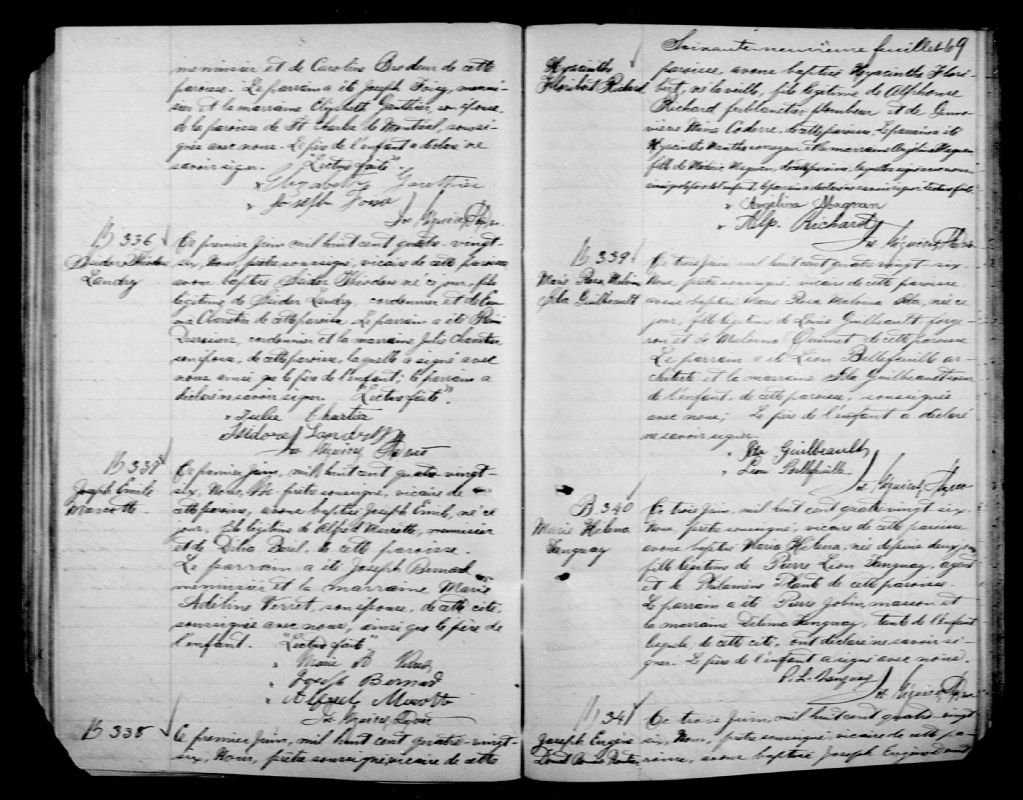 menuisier et de Caroline Brodeur de cette
paroisse. Le parrain a été Joseph menui-
sier et la marraine Elizabeth Gauthier son épouse
de la paroisse de St Charles de Montréal, soussi-
gnés avec nous. Le père de l'enfant a déclaré ne
savoir signer. "Lecture faite"
Elizabeth
Joseph
Ptre
B 336
Isidor Théodore
Landry
Ce premier Juin mil huit cent quatre-vingt-
six, Nous, prêtre soussigné, vicaire de cette paroisse
avons baptisé Isidor Théodore né ce jour, fils
légitime de Isidor Landry, cordonnier et de
Chartier de cette paroisse. Le parrain a été Rémi
cordonnier et la marraine Julie Chartier
son épouse, de cette paroisse, laquelle a signé avec
nous ainsi que le père de l'enfant; le parrain a
déclaré ne savoir signer. "Lecture faite".
Julie Chartier
Isidore Landry
Ptre
B 337
Joseph Emile
Marcotte
Ce premier Juin, mil huit cent quatre-vingt-
six, Nous, prêtre soussigné, vicaire de
cette paroisse, avons baptisé Joseph Emile, né ce
jour, fils légitime de Alfred Marcotte, menuisier
et de Délia de cette paroisse.
Le parrain a été Joseph Bernard
menuisier et la marraine Marie
Adeline Verret, son épouse, de cette cité
soussignés avec nous, ainsi que le père de
l'enfant. "Lecture faite"
Marie A Verret
Joseph Bernard
Alfred Marcotte
Ptre
B 338
Ce premier Juin, mil huit cent quatre-vingt-
six, Nous, prêtre soussigné, vicaire de cette
Soixante neuvième feuillet 69
Hyacinthe
Floribert Richard
paroisse, avons baptisé Hyacinthe Flori-
bert, né la veille, fils légitime de Alphonse
Richard ferblantier plombier et de Gene-
viève Mina Coderre de cette paroisse. Le parrain a été
Hyacinthe et la marraine Angelina Magnan
fille de Magnan, de cette paroisse, laquelle a signé avec nous
ainsi que le père de l'enfant, le parrain a déclaré ne savoir signer. Lecture faite
Angelina Magnan
Alp. Richard
Ptre
B 339
Marie Rosa Malvina
Guilbeault
Ce trois Juin, mil huit cent quatre vingt six
Nous, prêtre soussigné, vicaire de cette paroisse
avons baptisé Marie Rosa Malvina née ce
jour, fille légitime de Louis Guilbeault forge-
ron et de Malvina Ouimet de cette paroisse
Le parrain a été Léon Bellefeuille ar-
chitecte et la marraine Guilbeault soeur
de l'enfant, de cette paroisse, soussignés
avec nous; Le père de l'enfant a déclaré
ne savoir signer.
Guilbeault
Léon Bellefeuille
Ptre
B. 340
Marie Helena
Tanguay
Ce trois Juin, mil huit cent quatre vingt six
Nous, prêtre soussigné, vicaire de cette paroisse
avons baptisé Maria Helena, née depuis deux
fille légitime de Pierre Léon Tanguay, agent
et de Philomène Plante de cette paroisse.
Le parrain a été Pierre Jobin, maçon et
la marraine Délima Tanguay, tante de l'enfant
lesquels, de cette cité, ont déclaré ne savoir si-
gner. Le père de l'enfant a signé avec nous.
P. L. Tanguay
Ptre
B 341
Joseph Eugène
Ce trois Juin, mil huit cent quatre vingt
six, Nous, prêtre soussigné, vicaire de cette pa-
roisse, avons baptisé Joseph Eugène